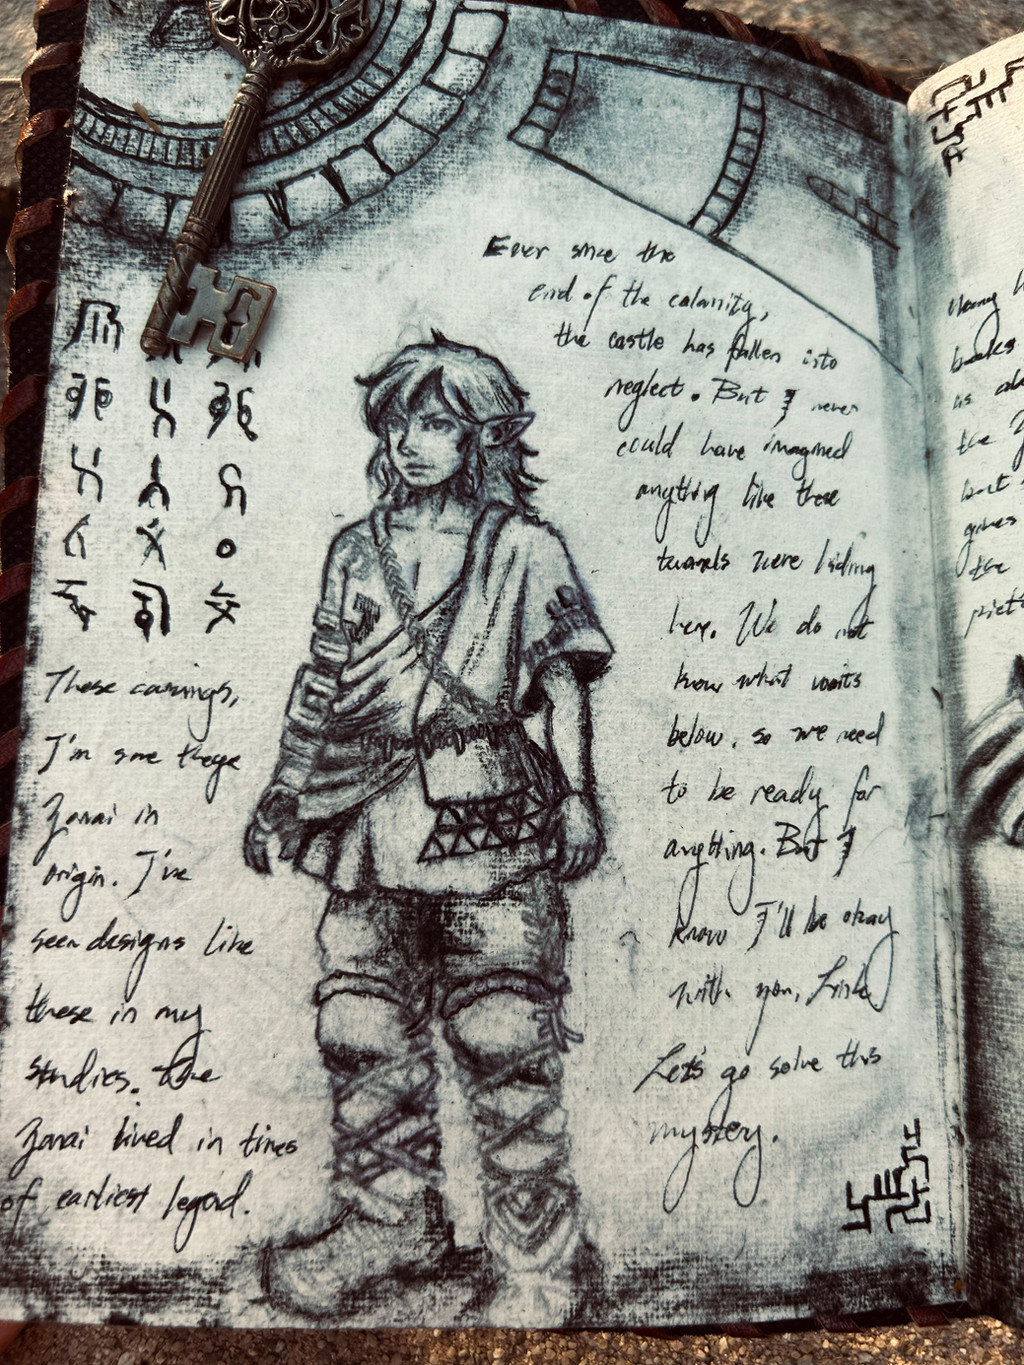 Ever since the
end of the calamity,
the castle has fallen into
neglect. But I never
could have imagined
anything like these
tunnels were hiding
here. We do not
know what waits
below, so we need
to be ready for
anything. But I
know I'll be okay
with you, Link
Let's go solve this
mystery.
These carvings,
I'm sure they're
Zonai in
origin. I've
seen designs like
these in my
studies. The
Zonai lived in times
of earliest legend.
books
as
the
but
gives
the